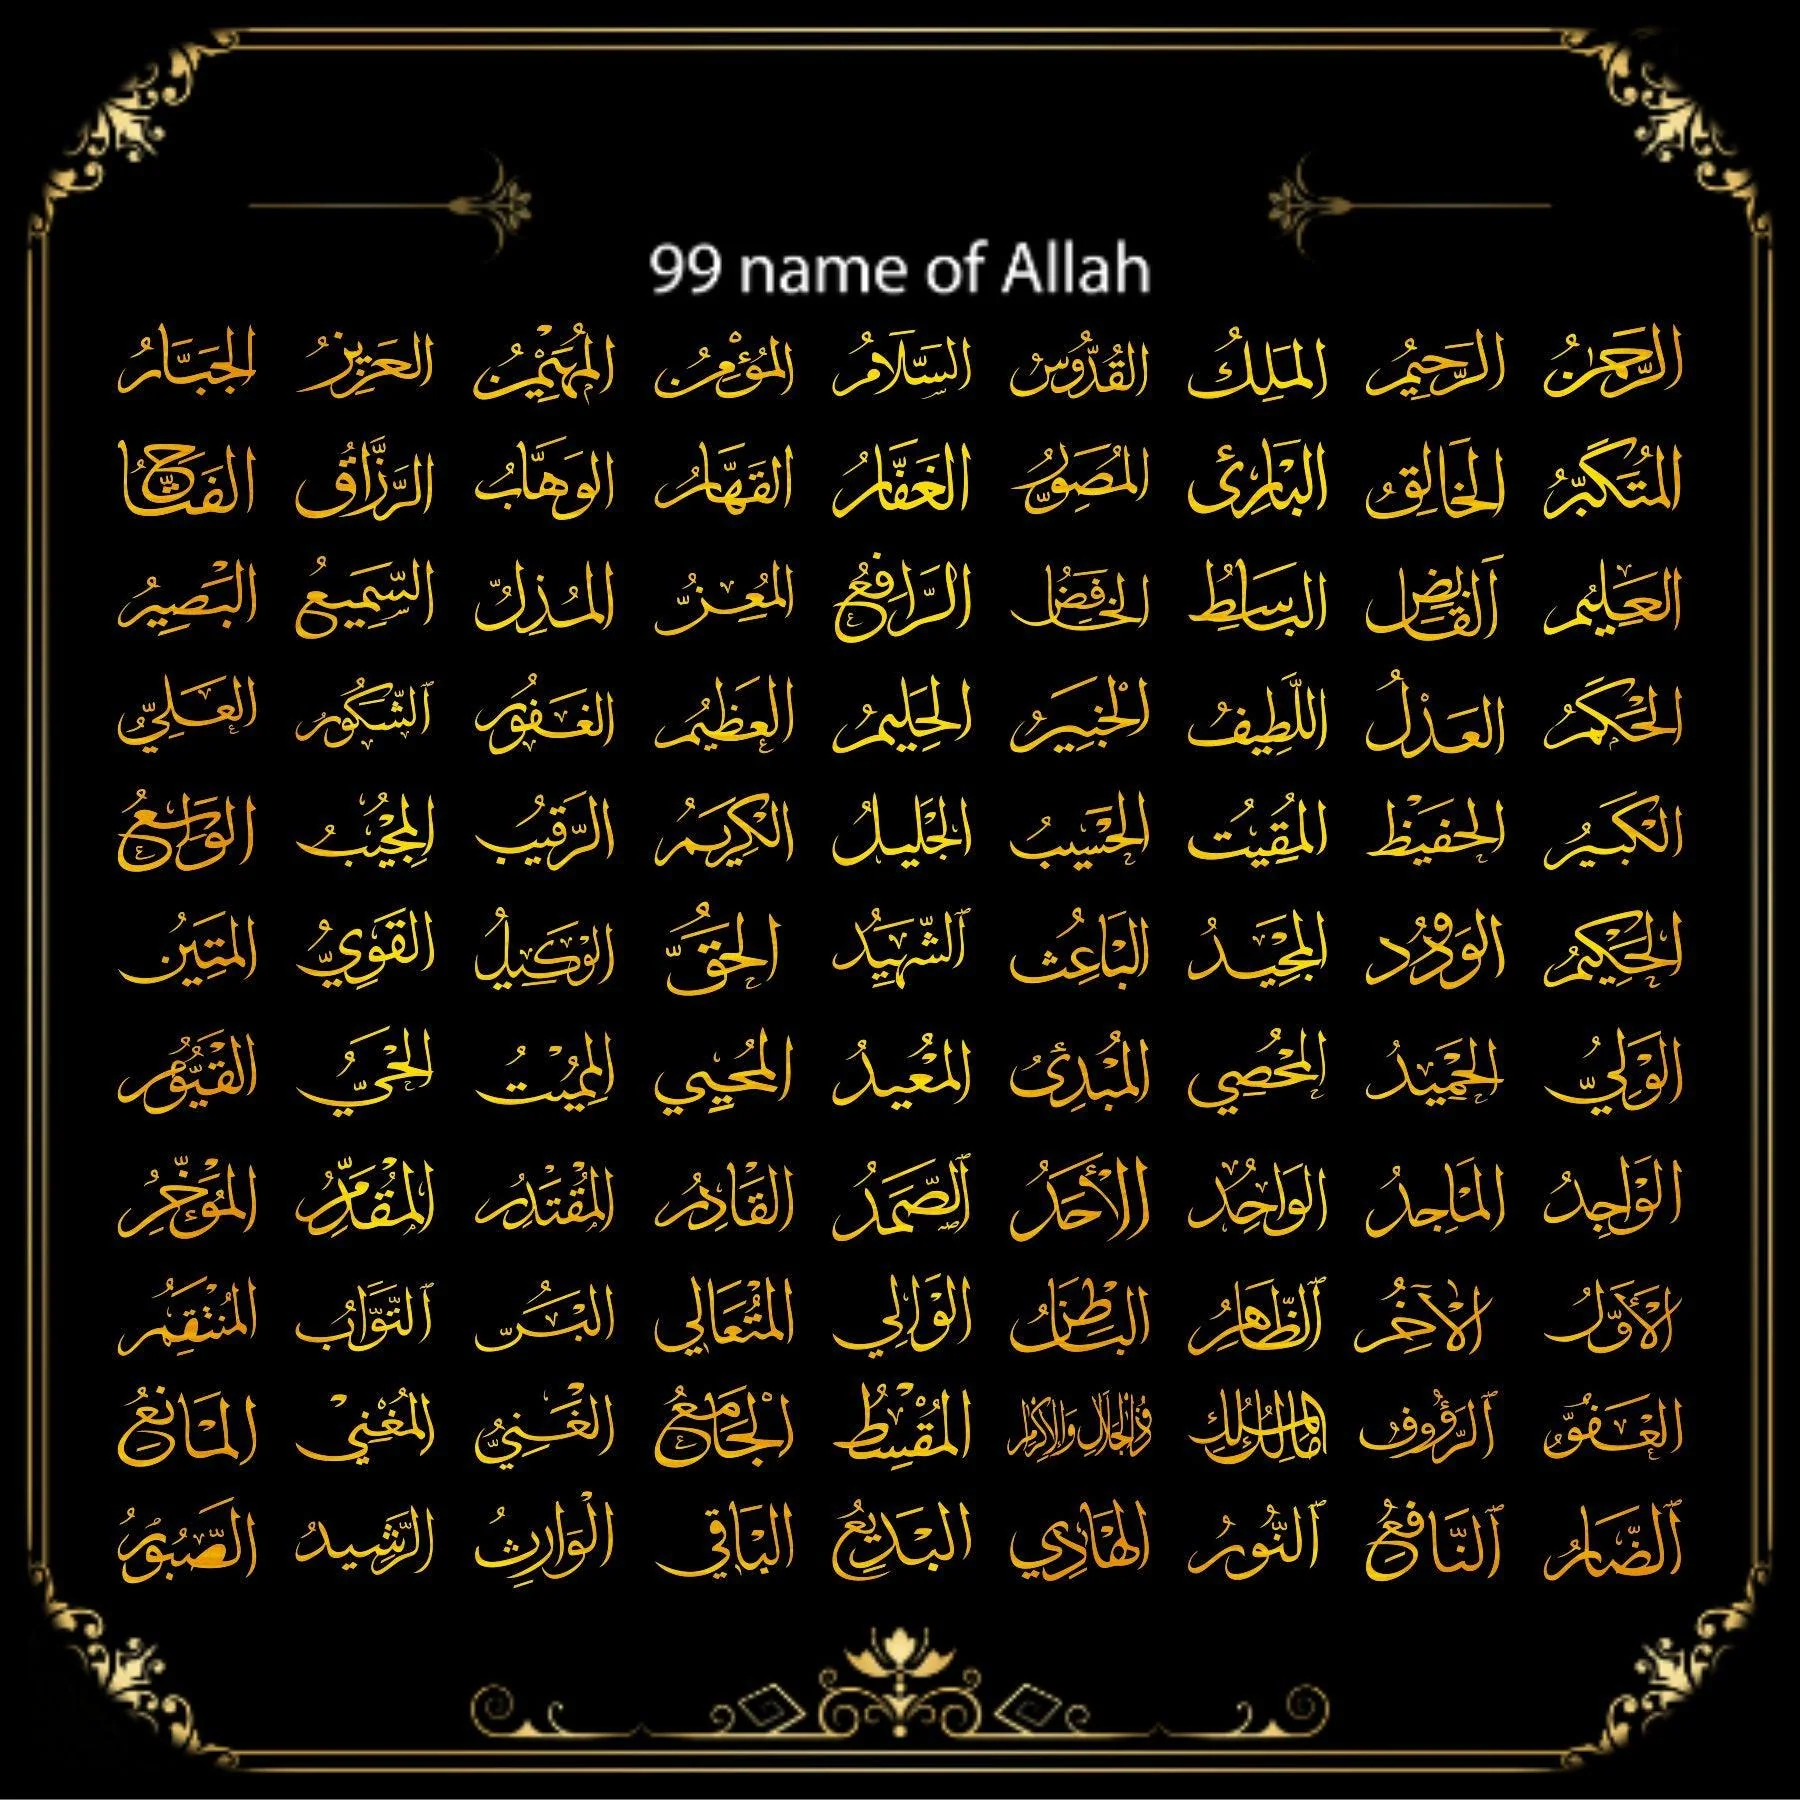 99 name of Allah
الرَّحْمَنُ الرَّحِيمُ المَلِكُ القُدُّوسُ السَّلَامُ المُؤْمِنُ المُهَيْمِنُ العَزِيزُ الجَبَّارُ
المُتَكَبِّرُ الخَالِقُ البَارِئُ المُصَوِّرُ الغَفَّارُ القَهَّارُ الوَهَّابُ الرَّزَّاقُ الفَتَّاحُ
العَلِيمُ القَابِضُ البَاسِطُ الخَافِضُ الرَّافِعُ المُعِزُّ المُذِلُّ السَّمِيعُ البَصِيرُ
الحَكَمُ العَدْلُ اللَّطِيفُ الخَبِيرُ الحَلِيمُ العَظِيمُ الغَفُورُ الشَّكُورُ العَلِيُّ
الكَبِيرُ الحَفِيظُ المُقِيتُ الحَسِيبُ الجَلِيلُ الكَرِيمُ الرَّقِيبُ المُجِيبُ الوَاسِعُ
الحَكِيمُ الوَدُودُ المَجِيدُ البَاعِثُ الشَّهِيدُ الحَقُّ الوَكِيلُ القَوِيُّ المَتِينُ
الوَلِيُّ الحَمِيدُ المُحْصِي المُبْدِئُ المُعِيدُ المُحْيِي المُمِيتُ الحَيُّ القَيُّومُ
الوَاجِدُ المَاجِدُ الوَاحِدُ الأَحَدُ الصَّمَدُ القَادِرُ المُقْتَدِرُ المُقَدِّمُ المُؤَخِّرُ
الأَوَّلُ الآخِرُ الظَّاهِرُ البَاطِنُ الوَالِي المُتَعَالِي البَرُّ التَّوَّابُ المُنْتَقِمُ
العَفُوُّ الرَّؤُوفُ مَالِكُ المُلْكِ ذُو الجَلَالِ وَالإِكْرَامِ المُقْسِطُ الجَامِعُ الغَنِيُّ المُغْنِي المَانِعُ
الضَّارُ النَّافِعُ النُّورُ الهَادِي البَدِيعُ البَاقِي الوَارِثُ الرَّشِيدُ الصَّبُورُ